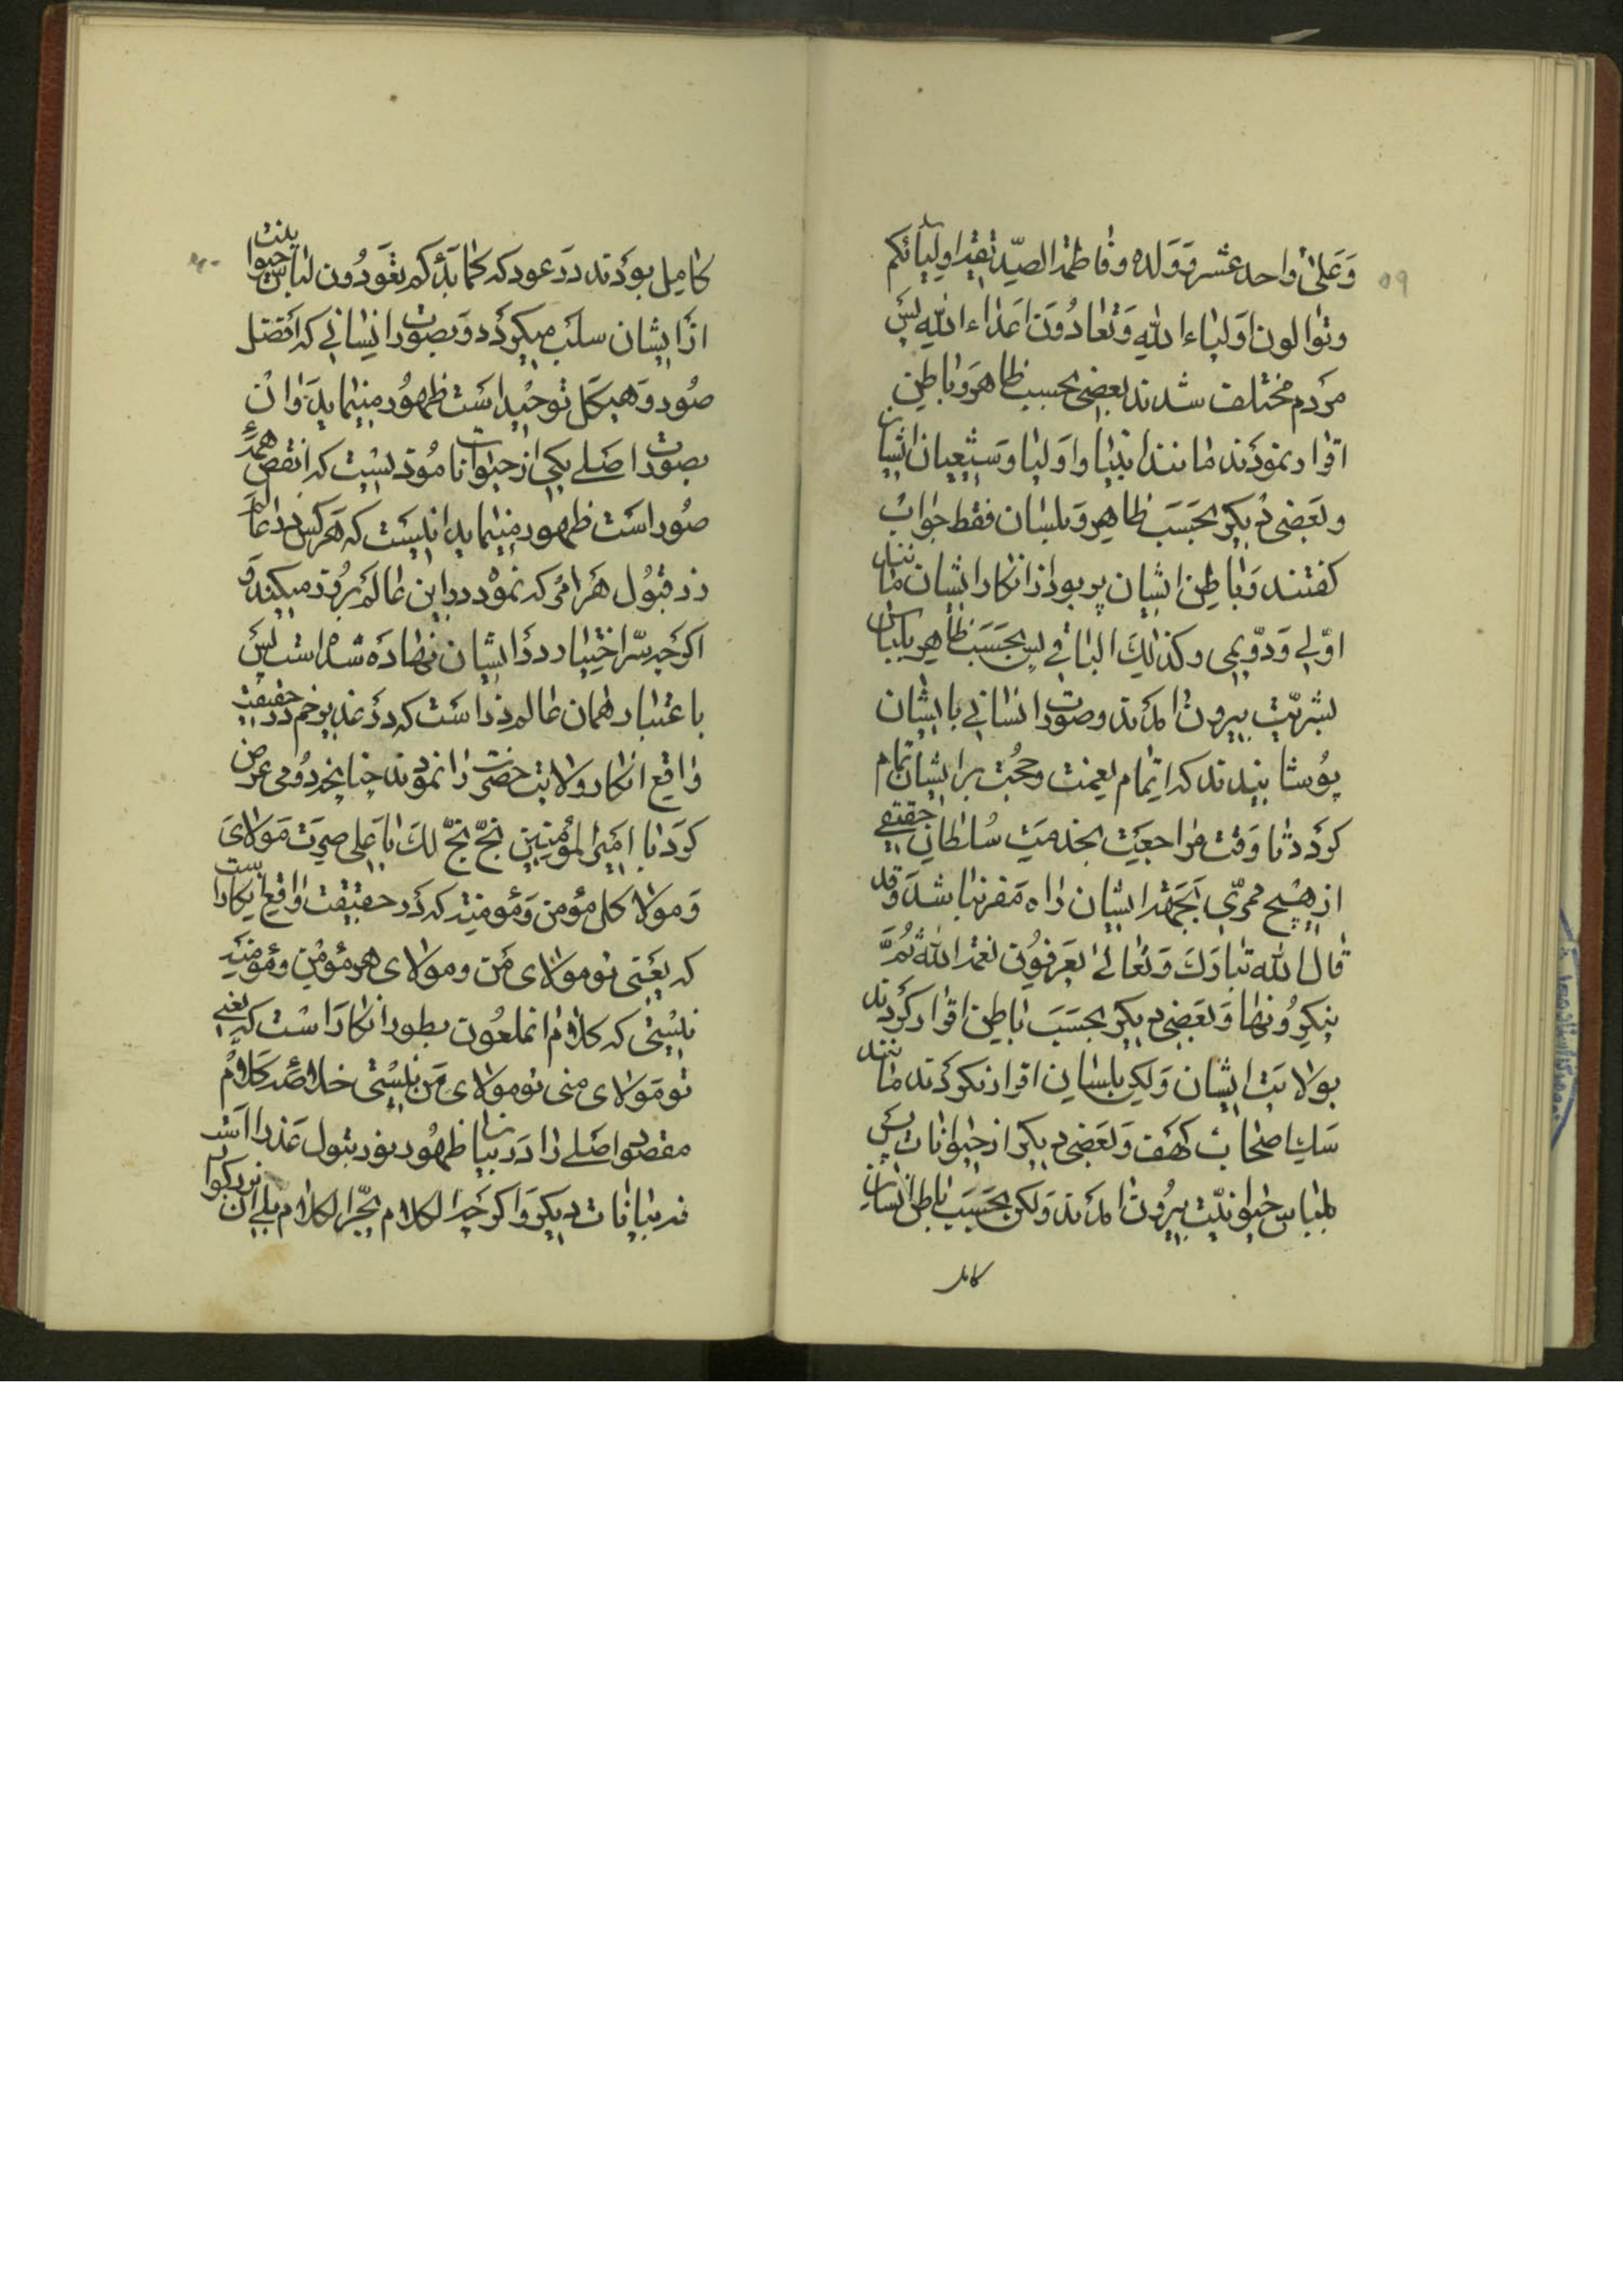 ۵۹
وَعَلیٰ واحد عشر وَولده و فاطمة الصدیّقة اولیائکم
وتوالون اَولیاء الله وَتعادُونَ اَعداء الله پس
مردم مختلف شدند بعضی بحسب ظاهر وَباطن
اقرار نمودَند مانند انبیا و اَولیا وَشیعیان ایشان
وبَعضی دیکر بحَسَب ظاهر وَبلسان فقط جواب
کفتند وَباطن ایشان پر بود از انکار ایشان مانند
اوّلی وَدوّیمی وکذلِكَ الباقی پس بحَسَب ظاهر بلباس
بشریّت بیرون امَدند وصورت انسانی بایشان
پوُشانیدند که اتمام نعمت وحُجت بر ایشان تمام
کردد تا وَقت مراجعَت بخدمت سُلطان حقیقی
از هیچ ممرّی بجهة ایشان راه مَفر نباشد وَقد
قال الله تبارَكَ وَتعالیٰ یَعرفوُن نعمة الله ثُمَّ
ینکروُنها وَبَعضی دیکر بحسَبَ باطن اقرار کردند
بولایت ایشان وَلیکن بلسان اقرار نکردند مانند
سَك اصحاب کهَف وَبَعضی دیکر از حیوانات پس
بلباس حیوانیّت بیروُن امَدند وَلکن بحَسَب باطن انسان
کامل
۶۰
کامِل بودَند در عود که کما بَدَءکم تعَودُون لباس حیوانیت
از ایشان سلب میکردد وَبصورت انسانی که افضل
صُور وَهیکل توحید است ظهوُر مینماید وَان
بصورت اصلی یکی از حیوانات نامُود نیست که انقص همهٔ
صُور است ظهور مینماید اینست که هَرکس در عالم
ذر قبوُل هَر امری که نموْد در این عالم بُروُز میکند وَ
اکرچه سّر اختیار در ذا ایشان نهاده شده است پس
باعتبار همان عالم ذر است که در غدیر خم در حقیقت
واقع انکار ولایت حضرت را نموْدند چنانچه دوُمی عرض
کرد یا امیر المؤمنین بخّ بخّ لكَ یا عَلی صِرتَ مَولایَ
وَمولا کل مؤمن وَمؤمنة که دَر حقیقت واقع انکار است
که یعَنی تو مولای من ومولای هر مؤمن ومؤمنهٔ
نیستی که کلام انملعوُن بطور انکار است که یعنی
تو مَولای منی تو مولای مَن نیستی خلاصَه کلام
مقصود اصلی را در بیان ظهوُر نور بتول عَذرا است
نه بیانات دیکر وَاکرچه الکلام یجّر الکلام بلی ان بزرکوار